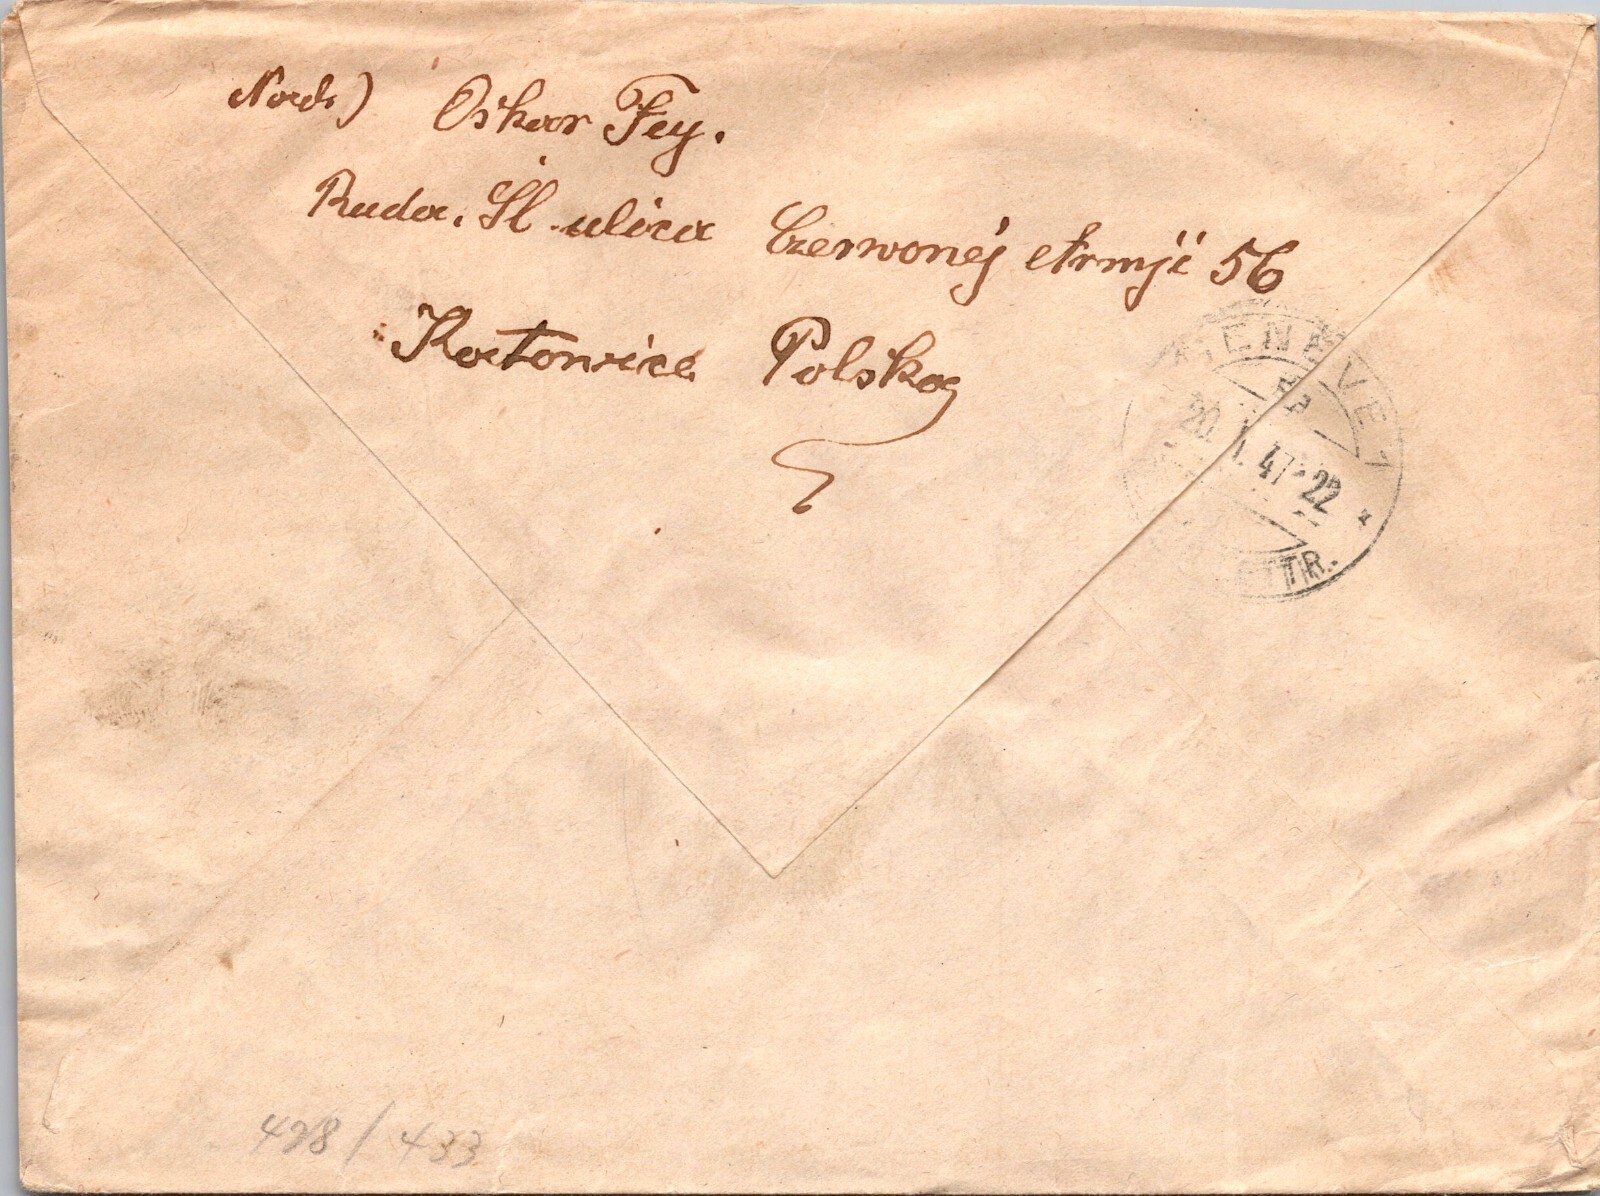 Nad.) Oskar Fey.
Ruda. Śl. ulica Czerwonej Armji 56
Katowice Polska
GENEVE 1
20. I. 47-22
TTR.
498 / 433